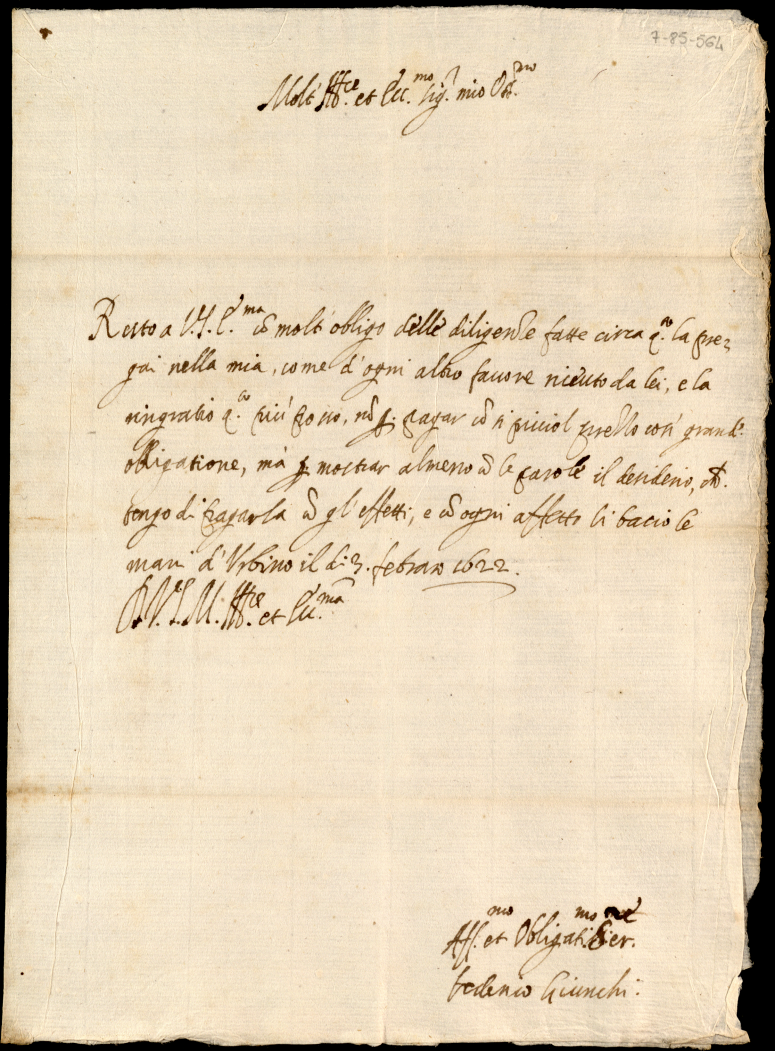 7-85-564
Molt' Ill.re et Ecc.mo Sig.r mio Oss.mo
Resto a V.S. E.ma cõ molt'obligo delle diligenze fatte circa q.to la pre=
gai nella mia, come d'ogni altro favore riceuto da lei, e la
ringratio q.to piu' posso, nõ p. pagar cõ si picciol prezzo così grand'
obligatione, mà p mostrar almeno cõ le parole il desiderio, ch.
tengo di pagarla cõ gl'effetti, e cõ ogni affetto li bacio le
mani d'Urbino il dì 3. febraro 1622.
D. V. S. M. Ill.re et Ecc.ma
Aff.mo et Obligati.mo Ser.re
Federico Giunchi.